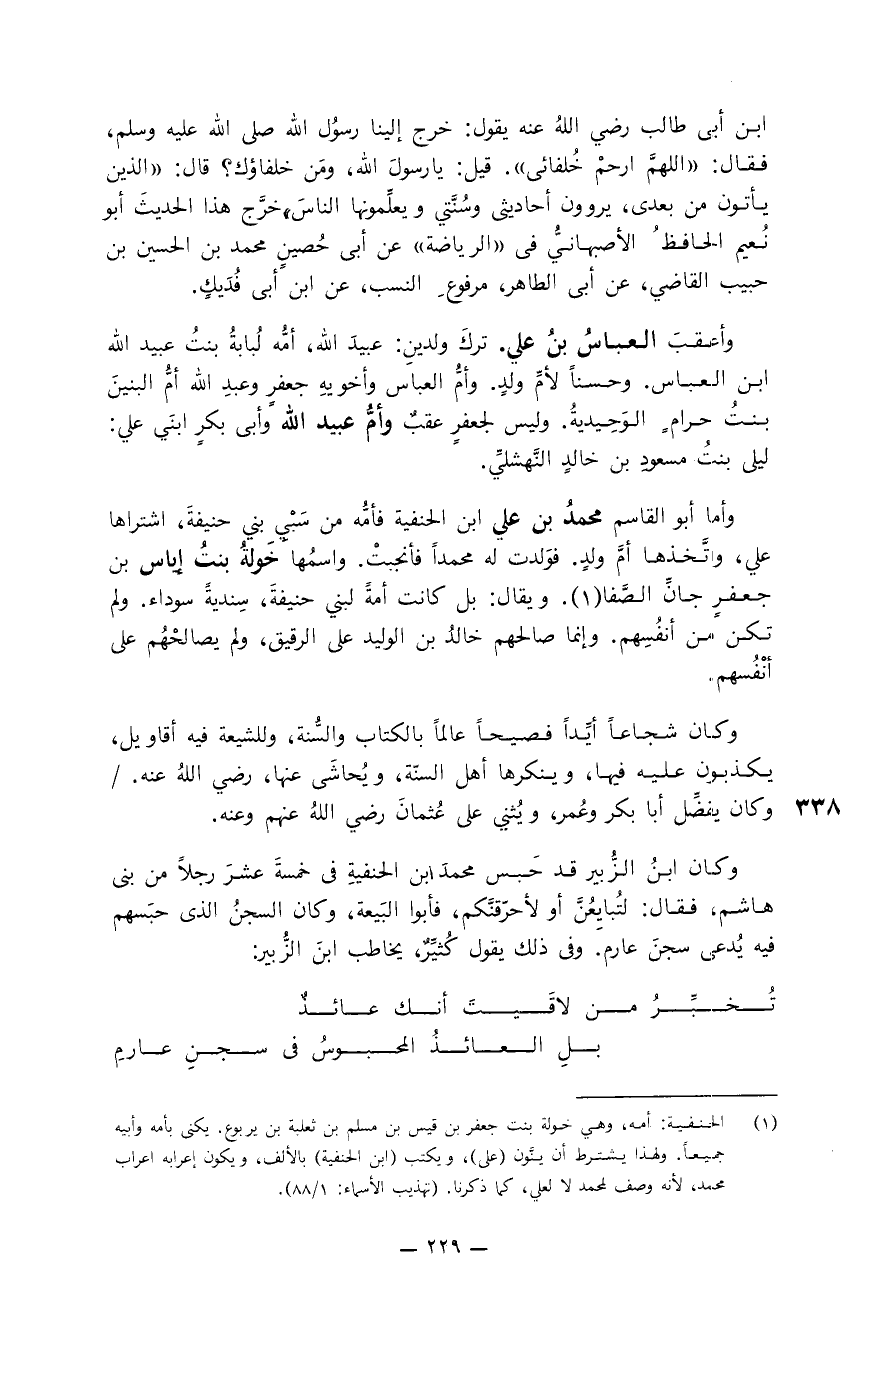 ابـن أبى طالب رضي اللهُ عنه يقول: خرج إلينا رسوُل الله صلى الله عليه وسلم،
فـقـال: «اللهمَّ ارحمْ خُلفائى». قيل: يارسولَ الله، ومَن خلفاؤك؟ قال: «الذين
يـأتـون من بعدى، يروون أحاديثى وسُنَّتي ويعلِّمونها الناسَ، خرَّج هذا الحديثَ أبو
نُـعيم الحافظُ الأصبهـانـيُّ فى «الرياضة» عن أبى حُصينٍ محمد بن الحسين بن
حبيب القاضي، عن أبى الطاهر، مرفوعِ النسب، عن ابن أبى فُدَيكٍ.
وأعـقـبَ العباسُ بنُ علي. تركَ ولدينِ: عبيدَ الله، أمُّه لُبابةُ بنتُ عبيد الله
ابـن الـعبـاس. وحـسنـاً لأمِّ ولدٍ. وأمُّ العباس وأخويهِ جعفرٍ وعبدِ الله أمُّ البنينَ
بـنـتُ حـرامٍ الـوَحِيديةُ. وليس لجعفرٍ عقبٌ وأمُّ عبيد الله وأبى بكرٍ ابنَي علي:
ليلى بنتُ مسعودِ بن خالدٍ النَّهشليِّ.
وأما أبو القاسم محمدُ بن علي ابن الحنفية فأمُّه من سَبْيِ بني حنيفةَ، اشتراها
علي، واتَّـخذهـا أمَّ ولدٍ. فوَلدت له محمداً فأنجبتْ. واسمُها خَولةُ بنتُ إياس بن
جعـفـرٍ جـانِّ الـصَّفا(١). ويقال: بل كانت أمةً لبني حنيفةَ، سِنديةً سوداء. ولم
تـكـن مـن أنفُسِهم. وإنما صالحهم خالدُ بن الوليد على الرقيق، ولم يصالحْهُم على
أنْفُسهم.
وكـان شـجـاعـاً أيِّـداً فـصيـحـاً عالماً بالكتاب والسُّنة، وللشيعة فيه أقاويل،
يـكـذبـون عـليـه فيهـا، ويـنكرها أهل السنّة، ويُحاشَى عنها، رضي اللهُ عنه. /
٣٣٨ وكان يفضِّل أبا بكر وعُمر، ويُثني على عُثمانَ رضي اللهُ عنهم وعنه.
وكـان ابـنُ الـزُّبير قـد حَـبـس محمدَ ابن الحنفيةِ فى خمسةَ عشـرَ رجلاً من بنى
هـاشـم، فـقـال: لتُبايعُنَّ أو لأحرّقنَّكم، فأبوا البَيعة، وكان السجنُ الذى حبَسهم
فيه يُدعى سجنَ عارم. وفى ذلك يقول كُثيِّرٌ، يخاطب ابنَ الزُّبير:
تُـخـبِّـرُ مـن لاقَـيـتَ أنـك عـائـذٌ
بـلِ الـعـائـذُ المحـبـوسُ فى سـجـنِ عـارمِ
(١) الحنـفـيـة: أمه، وهي خولة بنت جعفر بن قيس بن مسلم بن ثعلبة بن يربوع. يكنى بأمه وأبيه
جميعـاً. ولهذا يشترط أن ينَّون (على)، ويكتب (ابن الحنفية) بالألف، ويكون إعرابه اعراب
محمد، لأنه وصف لمحمد لا لعلي، كما ذكرنا. (تهذيب الأسماء: ٨٨/١).
— ٢٢٩ —